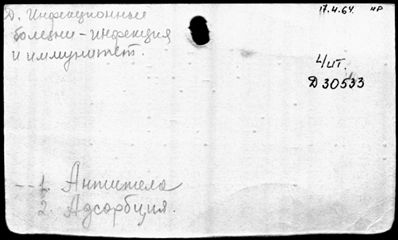 Д. Инфекционные
болезни - инфекция
и иммунитет.
17.4.64. нр
Чит.
Д30533
1. Антитела
2. Адсорбция.